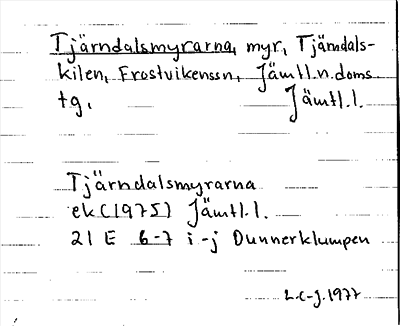 Tjärndalsmyrarna, myr, Tjärndals-
kilen, Frostvikenssn, Jämtl.n.doms
tg, Jämtl.l.
Tjärndalsmyrarna
ek (1975) Jämtl.l.
21 E 6-7 i-j Dunnerklumpen
L.C-J. 1977